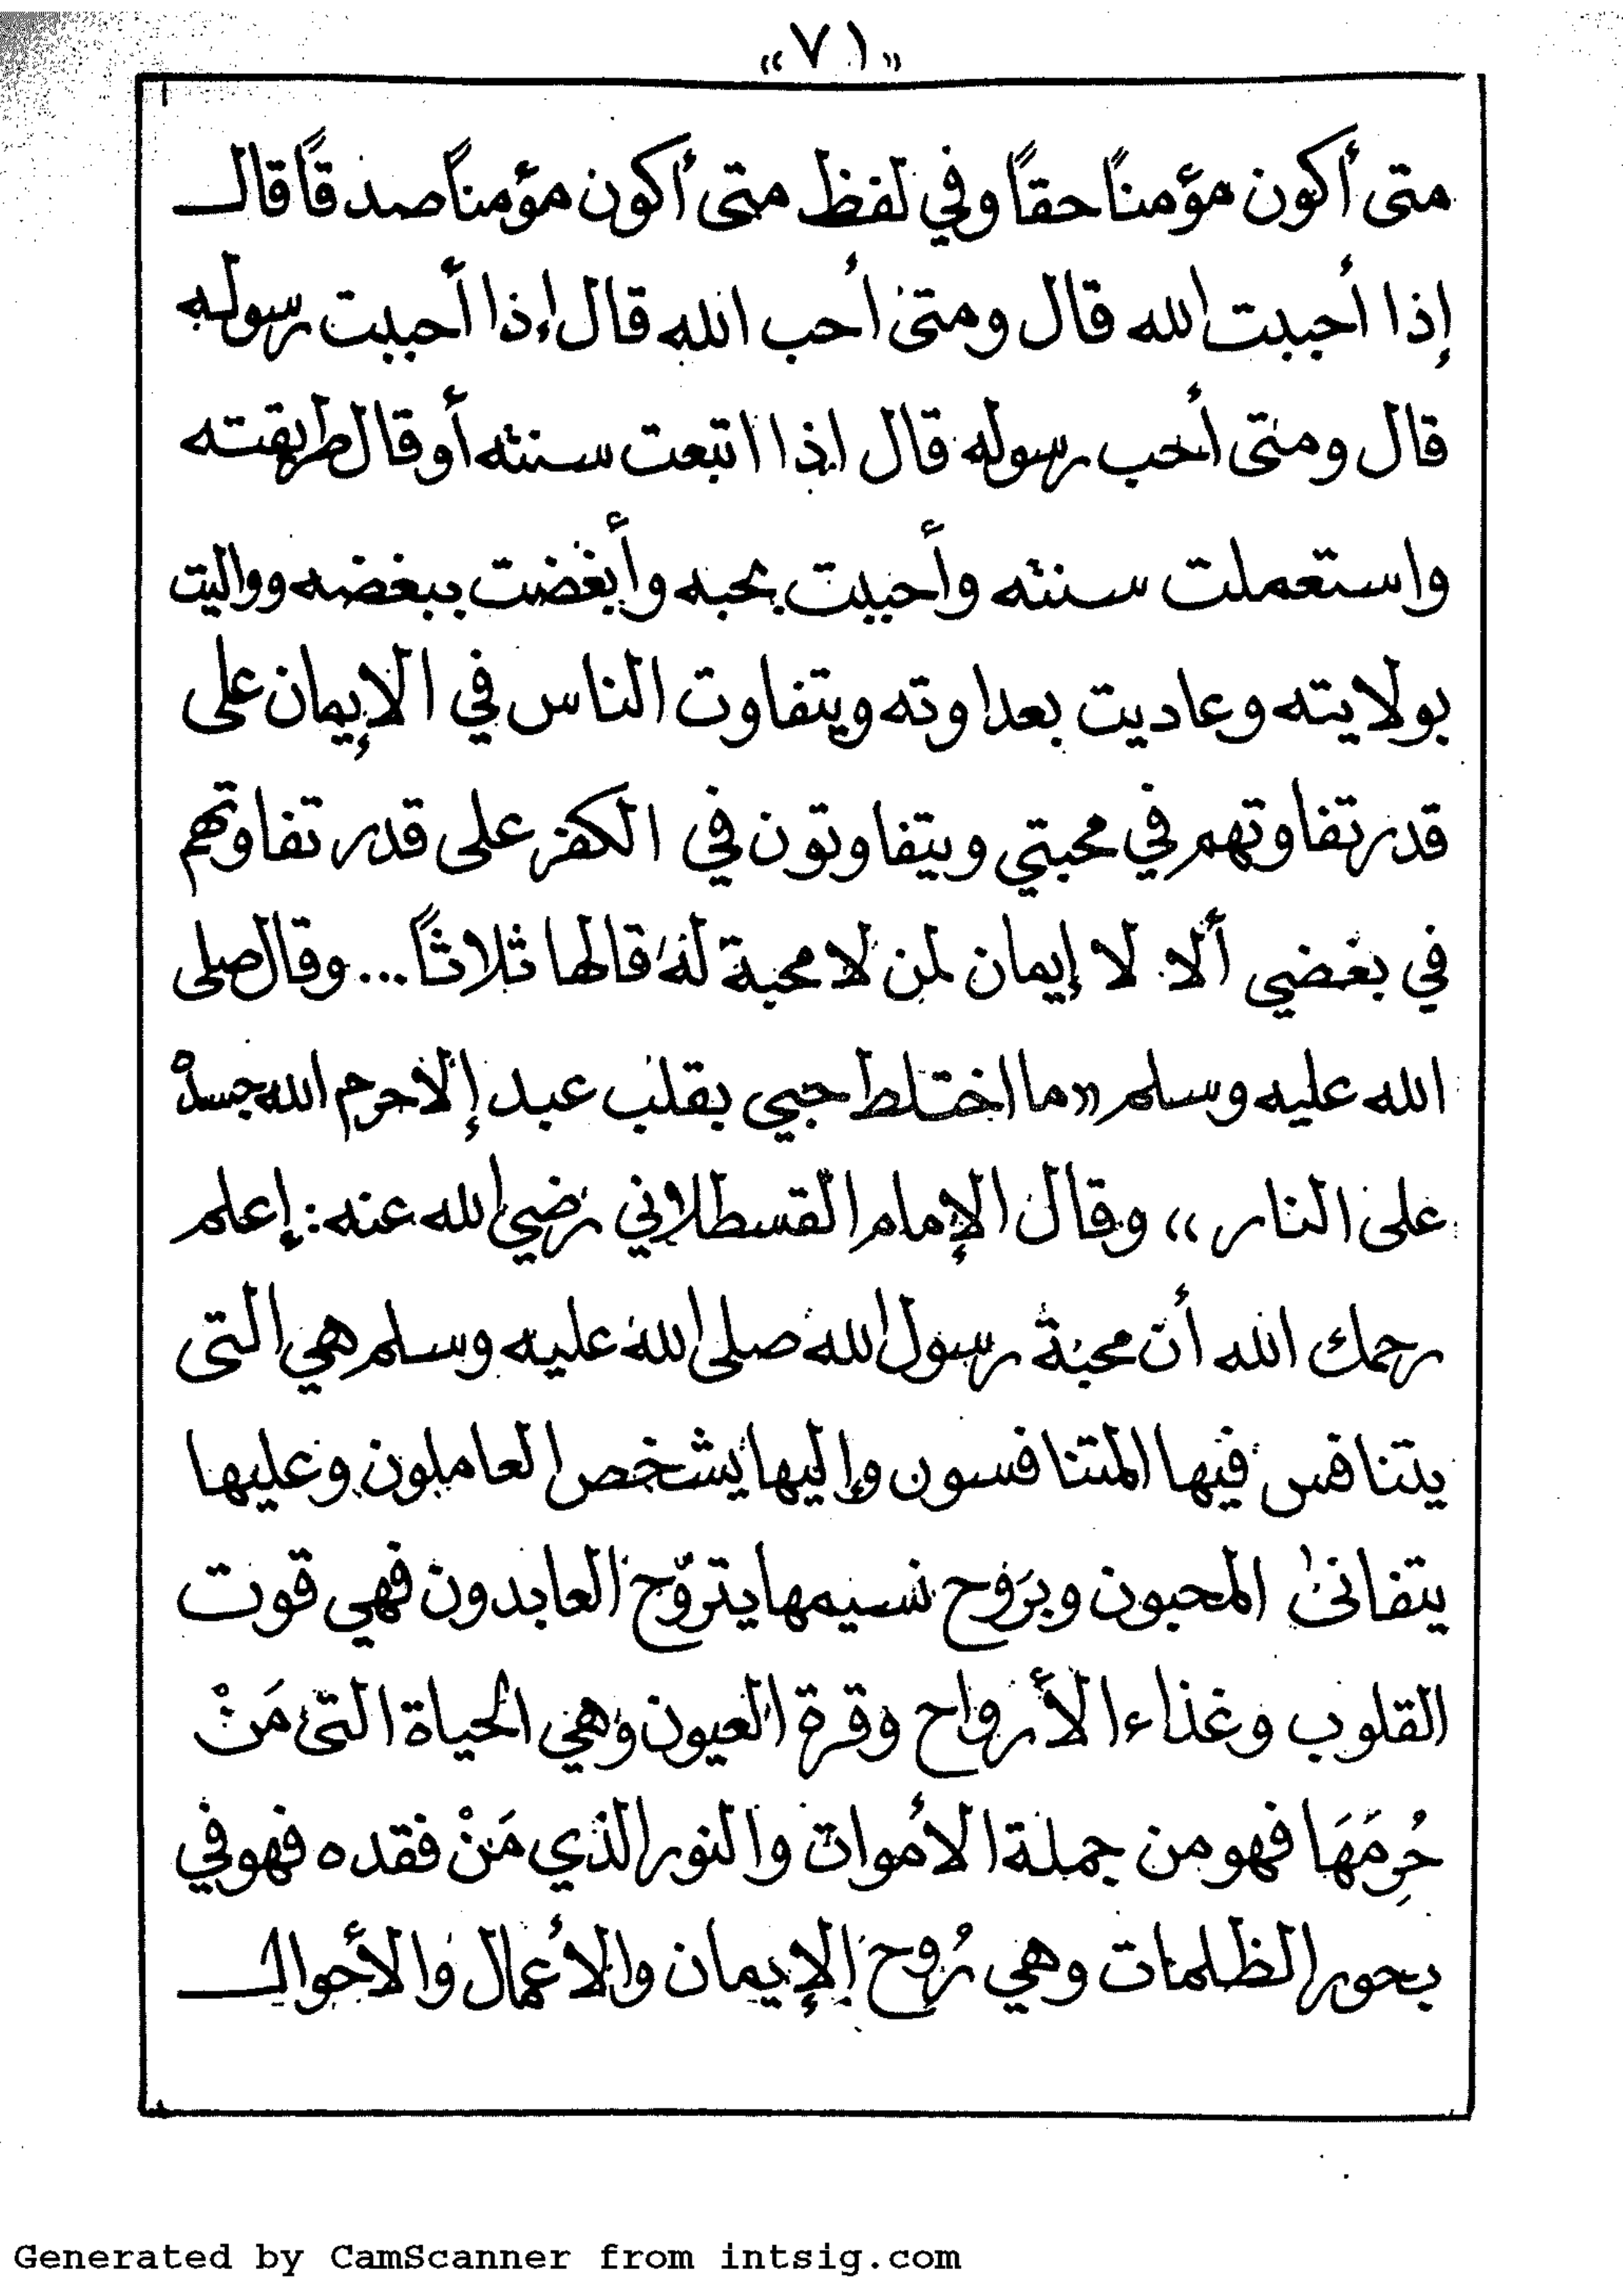 «٧١»
متى أكون مؤمنًا حقًا وفي لفظ متى أكون مؤمنًا صدقًا قال
إذا أحببت الله قال ومتى أحب الله قال إذا أحببت رسوله
قال ومتى أحب رسوله قال اذا اتبعت سنته أو قال طريقته
واستعملت سنته وأحببت بحبه وأبغضت ببغضه وواليت
بولايته وعاديت بعداوته ويتفاوت الناس في الإيمان على
قدر تفاوتهم في محبتي ويتفاوتون في الكفر على قدر تفاوتهم
في بغضي ألا لا إيمان لمن لا محبة له قالها ثلاثًا... وقال صلى
الله عليه وسلم «ما اختلط حبي بقلب عبد إلا حرم الله جسده
على النار» وقال الإمام القسطلاني رضي الله عنه: إعلم
رحمك الله أن محبة رسول الله صلى الله عليه وسلم هي التى
يتنافس فيها المتنافسون وإليها يشخص العاملون وعليها
يتفانىٰ المحبون وبرَوح نسيمها يتروّح العابدون فهي قوت
القلوب وغذاء الأرواح وقرة العيون وهي الحياة التى مَنْ
حُرِمَهَا فهو من جملة الأموات والنور الذي مَنْ فقده فهو في
بحور الظلمات وهي رُوح الإيمان والأعمال والأحوال
Generated by CamScanner from intsig.com